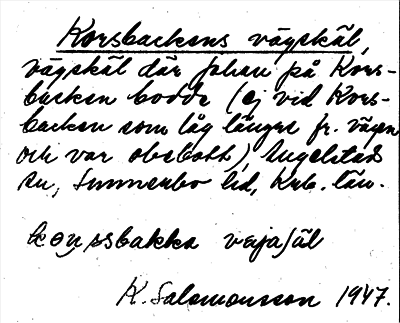 Korsbackens vägskäl,
vägskäl där Johan på Kors-
backen bodde (ej vid Kors-
backen som låg längre fr. vägen
och var obebott), Angelstads
sn, Sunnerbo hd, Krb. län.
vajaʃäl
K. Salomonsson 1947.